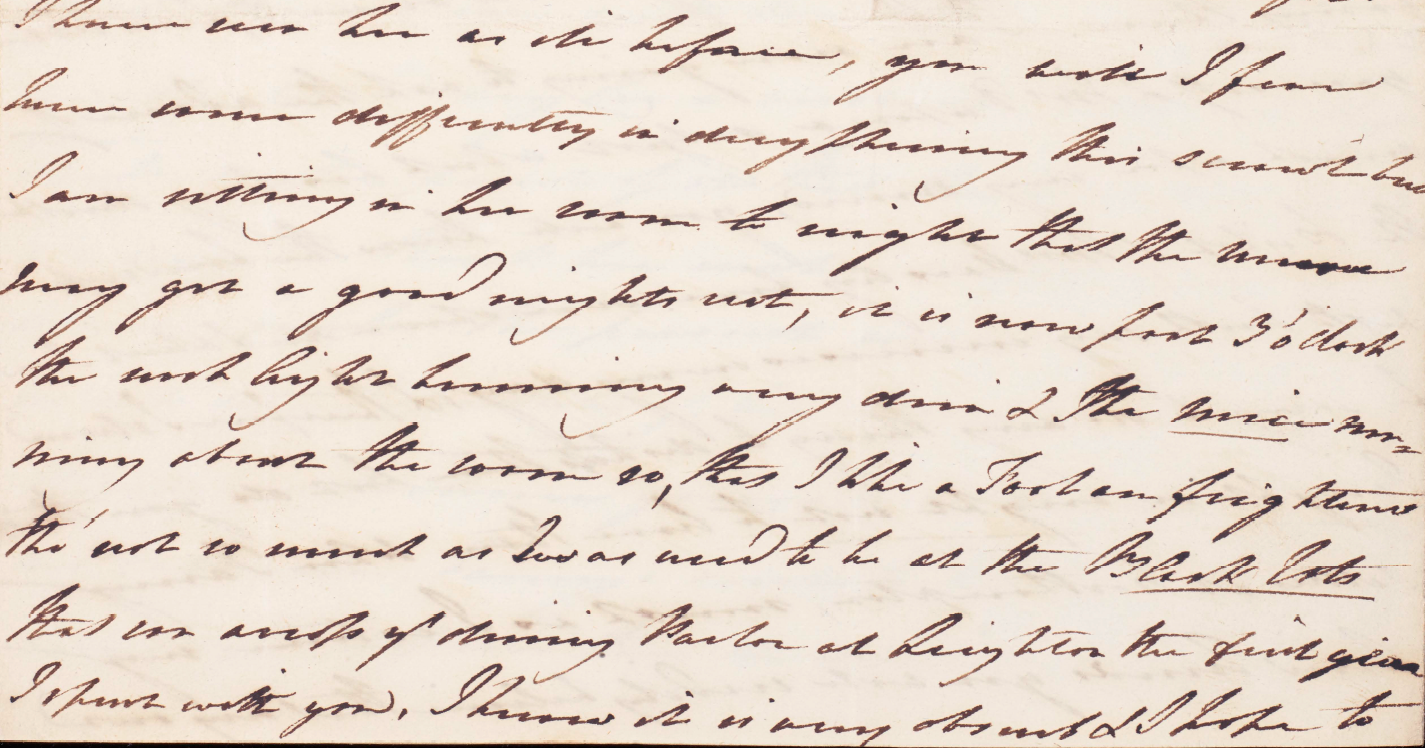 I have seen her as ill before, you will I fear
have some difficulty in decyphering this scrawl but
I am sitting in her room to night that the nurse
may get a good nights rest, it is now past 3 o'clock
the rush light burning very dim & the mice run=
ning about the room so, that I like a Fool am frightened
tho' not so much as I was used to be at the Black
that ran across yr dining Parlor at Brighton the first year
I spent with you, I know it is very absurd & I hope to